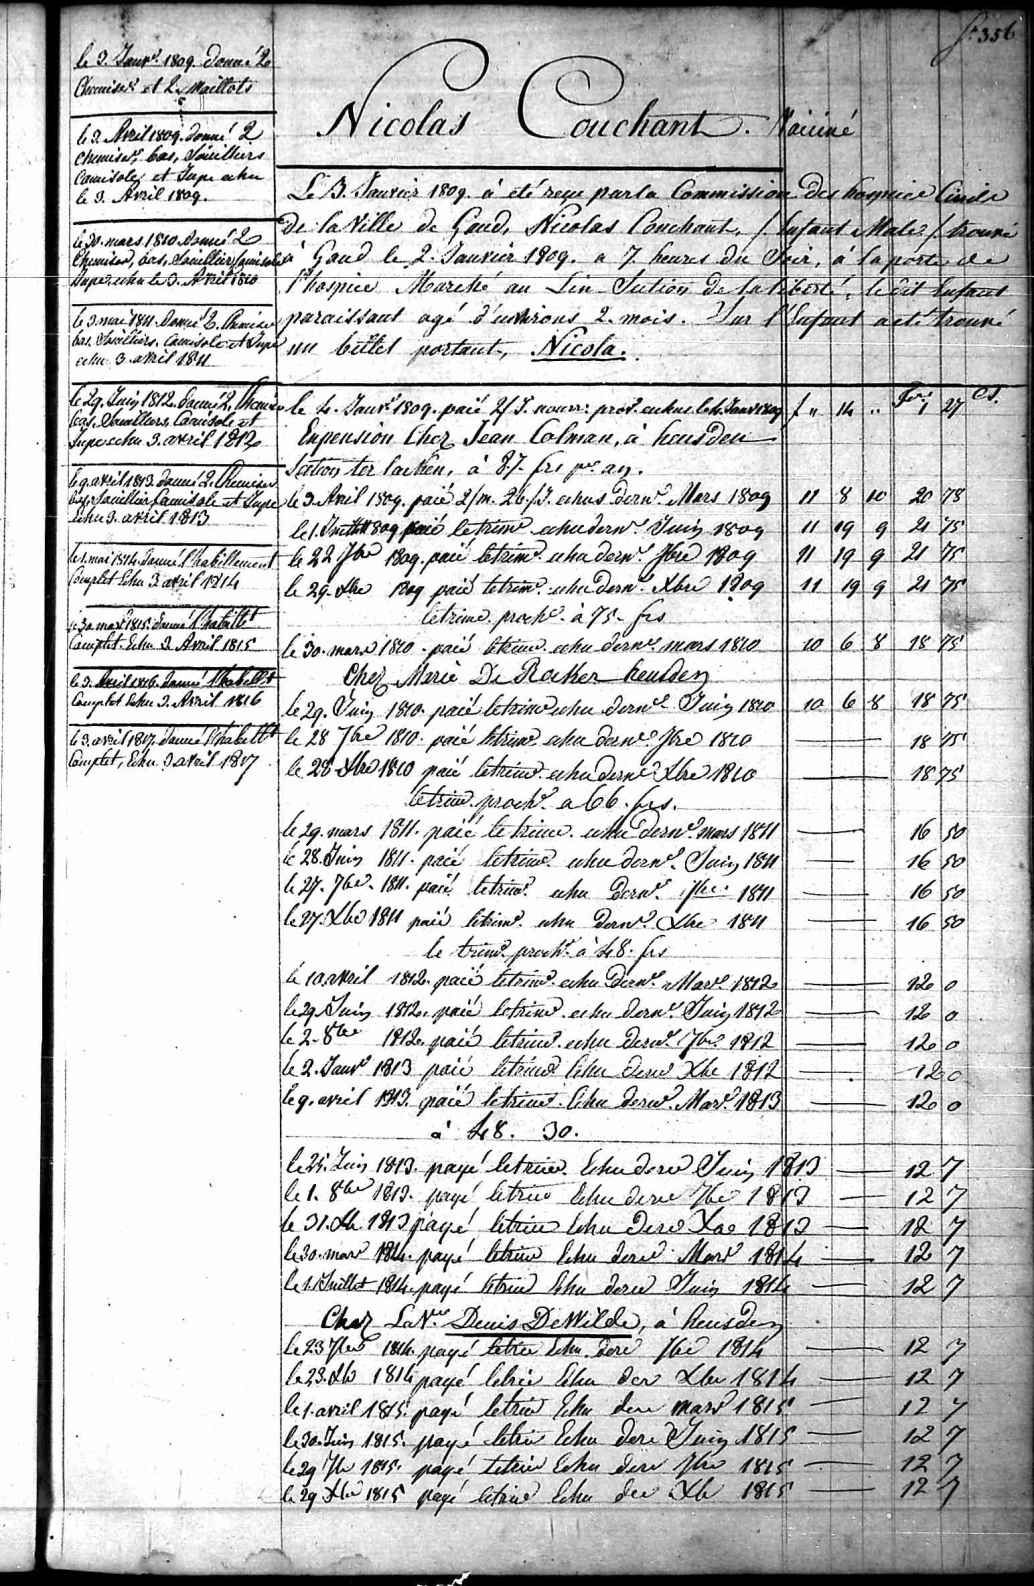 f° 356
le 3. Janvr. 1809. donné 2
Chemises et 2. Maillots
le 3. Avril 1809. donné 2
chemises, bas, Souilliers
Camisole et Jupe echu
le 3. Avril 1809.
le 30. mars 1810 donné 2
Chemises, bas, Souilliers, Camisole
Jupe, echu le 3. Avril 1810
le 3. mai 1811. donné 2. Chemises
bas, Souilliers, Camisole et Jupe
echu 3. avril 1811
le 29. Juin 1812. donné 2. Chemises
bas, Souilliers, Camisole et
Jupe echu 3. avril 1812
le 9. avril 1813. donné 2. Chemises
bas, Souilliers, Camisole et Jupe
Echu 3. avril 1813
le 1. mai 1814. donné l'habillement
Complet Echu 3 avril 1814
le 30. mars 1815. donné l'habillt
Complet. Echu 3. Avril 1815
le 3. Avril 1816. donné l'habillt
Complet Echu 3. Avril 1816
le 3. avril 1817. donné l'habillt
Complet, Echu 3 avril 1817
Nicolas Couchant. Vacciné
Le 3. Janvier 1809. à été reçu par la Commission des hospice Civils
de la Ville de Gand, Nicolas Couchant, / Enfant Male / trouvé
à Gand le 2. Janvier 1809. a 7. heures du Soir, à la porte de
l'hospice Marché au Lin Section de la liberté, le dit Enfant
paraissant agé d'environs 2. mois. Sur l'Enfant a été trouvé
un billet portant, Nicola.
frs cs.
le 4. Janvr. 1809. paié 2/J. nourr: prov. echue le 4. Janv 1809 f " 14 .. 1 27
Enpension Chez Jean Colman, à heusden
Section ter lacken, à 87. frs pr. an.
le 3. Avril 1809. paié 2/m. 26/J. echus dernr. Mars 1809 11 8 10 20 78
le 1. Juillt 1809 paié le trimr. echu dernr. Juin 1809 11 19 9 21 75
le 22 7bre 1809. paié le trimr. echu dernr. 7bre 1809 11 19 9 21 75
le 29. Xbre 1809 paié le trimr. echu dernr. Xbre 1809 11 19 9 21 75
le trimr. prochr. à 75. frs
le 30. mars 1810. paié le trimr. echu dernr. mars 1810 10 6 8 18 75
Chez Marie De Rocker heusden
le 29. Juin 1810. paié le trimr echu dernr. Juin 1810 10 6 8 18 75
le 28 7bre 1810. paié le trimr. echu dernr. 7bre 1810 — 18 75
le 28 Xbre 1810 paié le trimr. echu dernr Xbre 1810 — 18 75
le trimr. prochr. a 66. frs.
le 29. mars 1811. paié le trimr. echu dernr. mars 1811 — 16 50
le 28. Juin 1811. paié le trimr. echu dernr. Juin 1811 — 16 50
le 27. 7bre. 1811. paié le trimr. echu dernr. 7bre. 1811 — 16 50
le 27. Xbre 1811 paié le trimr. echu dernr. Xbre 1811 — 16 50
le trimr. prochr. à 48. frs
le 10. avril 1812. paié le trimr. echu dernr. Mars. 1812 — 12 0
le 29. Juin 1812. paié le trimr. echu dernr. Juin 1812 — 12 0
le 2. 8bre 1812. paié le trimr. echu dernr. 7bre. 1812 — 12 0
le 2. Janvr 1813 paié le trimr Echu dernr Xbre 1812 — 12 0
le 9. avril 1813. paié le trimr. Echu dernr. Mars. 1813 — 12 0
à 48. 30.
le 25. Juin 1813. payé le trimr. Echu dernr Juin 1813 — 12 7
le 1. 8bre 1813. payé le trimr Echu dernr 7bre 1813 — 12 7
le 31. Xb 1813 payé le trimr Echu dernr Xbre 1813 — 12 7
le 30. mars 1814. payé le trimr Echu dernr Mars 1814 — 12 7
le 1. Juillet 1814. payé le trimr Echu dernr Juin 1814 — 12 7
Chez La Ve. Denis De Wilde, à heusden
le 23 7bre 1814. payé le trimr Echu dernr 7bre 1814 — 12 7
le 23. Xb 1814 payé le trimr Echu der Xbre 1814 — 12 7
le 1. avril 1815. payé le trimr Echu der mars 1815 — 12 7
le 30. Juin 1815. payé le trimr Echu dernr Juin 1815 — 12 7
le 29 7b 1815. payé le trimr Echu dernr 7bre 1815 — 12 7
le 29 Xbre 1815 payé le trimr Echu der Xb 1815 — 12 7